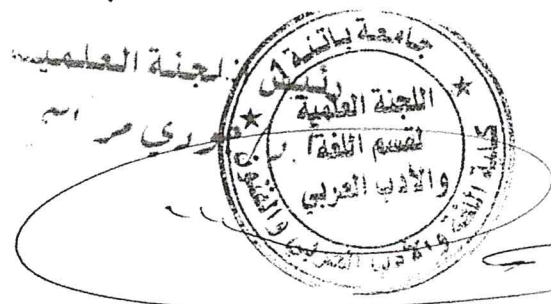 رئيس اللجنة العلمية
جامعة باتنة 1
اللجنة العلمية
لقسم اللغة
والأدب العربي
كلية اللغة والأدب العربي والفنون